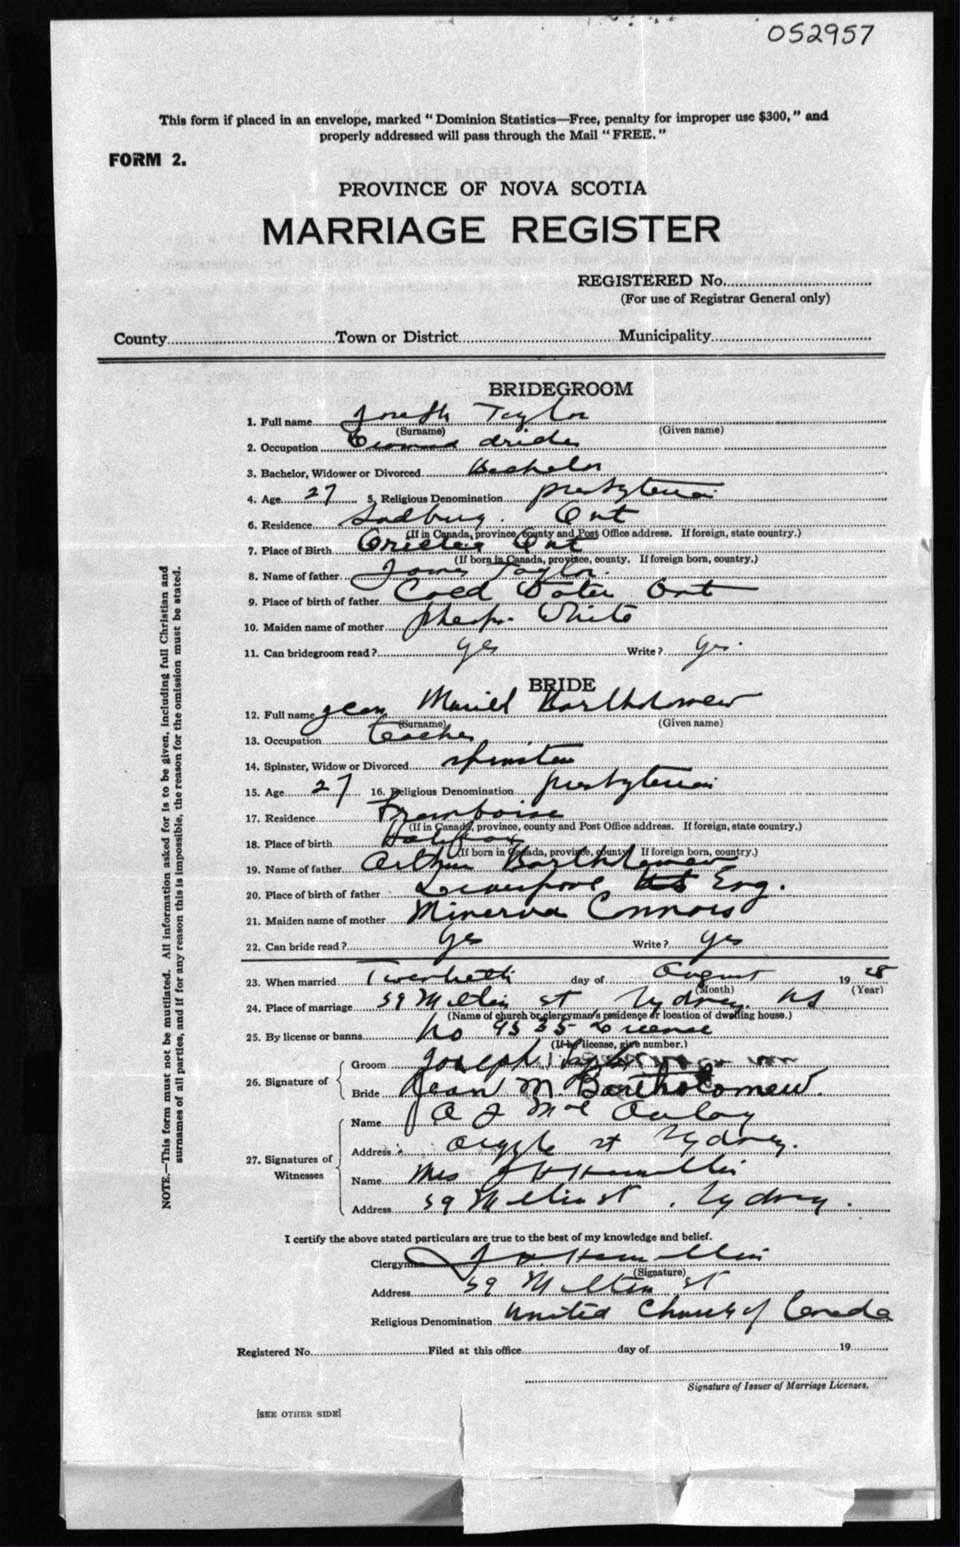 052957
This form if placed in an envelope, marked "Dominion Statistics—Free, penalty for improper use $300," and
properly addressed will pass through the Mail "FREE."
FORM 2.
PROVINCE OF NOVA SCOTIA
MARRIAGE REGISTER
REGISTERED No.
(For use of Registrar General only)
County Town or District Municipality
BRIDEGROOM
1. Full name Joseph Taylor
(Surname) (Given name)
2. Occupation drider
3. Bachelor, Widower or Divorced Bachelor
4. Age 27 5. Religious Denomination presbyterian
6. Residence Sudbury. Ont
(If in Canada, province, county and Post Office address. If foreign, state country.)
7. Place of Birth Ont
(If born in Canada, province, county. If foreign born, country.)
8. Name of father James Taylor.
9. Place of birth of father Cold Water Ont
10. Maiden name of mother White
11. Can bridegroom read? yes Write? yes.
BRIDE
12. Full name Jean Muriel Bartholomew
(Surname) (Given name)
13. Occupation teacher
14. Spinster, Widow or Divorced spinster
15. Age 27 16. Religious Denomination presbyterian
17. Residence Framboise
(If in Canada, province, county and Post Office address. If foreign, state country.)
18. Place of birth Halifax
(If born in Canada, province, county. If foreign born, country.)
19. Name of father Arthur Bartholomew
20. Place of birth of father Liverpool Eng.
21. Maiden name of mother Minerva Connors
22. Can bride read? yes Write? yes
23. When married Twentieth day of August 1928
(Month) (Year)
24. Place of marriage 59 Milton st Sydney. NS
(Name of church or clergyman's residence or location of dwelling house.)
25. By license or banns No 9535 License
(If by license, give number.)
26. Signature of
Groom Joseph Taylor
Bride Jean M. Bartholomew.
27. Signatures of Witnesses
Name A J MacAulay
Address Argyle st Sydney.
Name Mrs J H Hamilton
Address 59 Milton st. Sydney.
I certify the above stated particulars are true to the best of my knowledge and belief.
Clergyman J H Hamilton
(Signature)
Address 59 Milton st
Religious Denomination United Church of Canada
Registered No. Filed at this office day of 19
Signature of Issuer of Marriage Licenses.
[SEE OTHER SIDE]
NOTE.—This form must not be mutilated. All information asked for is to be given, including full Christian and
surnames of all parties, and if for any reason this is impossible, the reason for the omission must be stated.